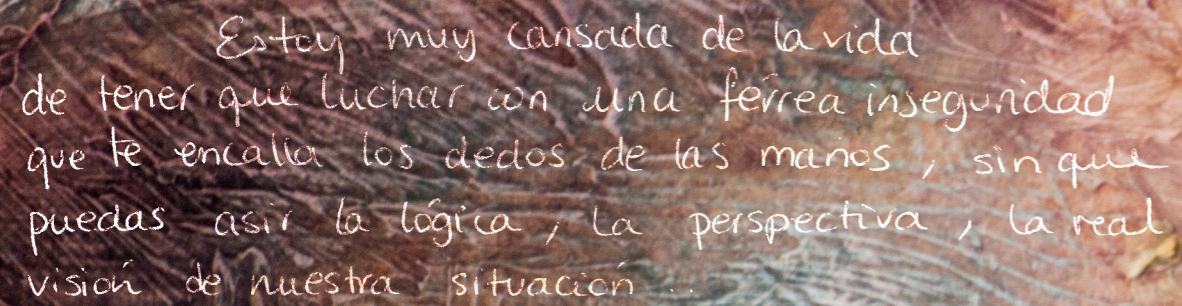 Estoy muy cansada de la vida
de tener que luchar con una férrea inseguridad
que te encalla los dedos de las manos, sin que
puedas asir la lógica, la perspectiva, la real
visión de nuestra situación...